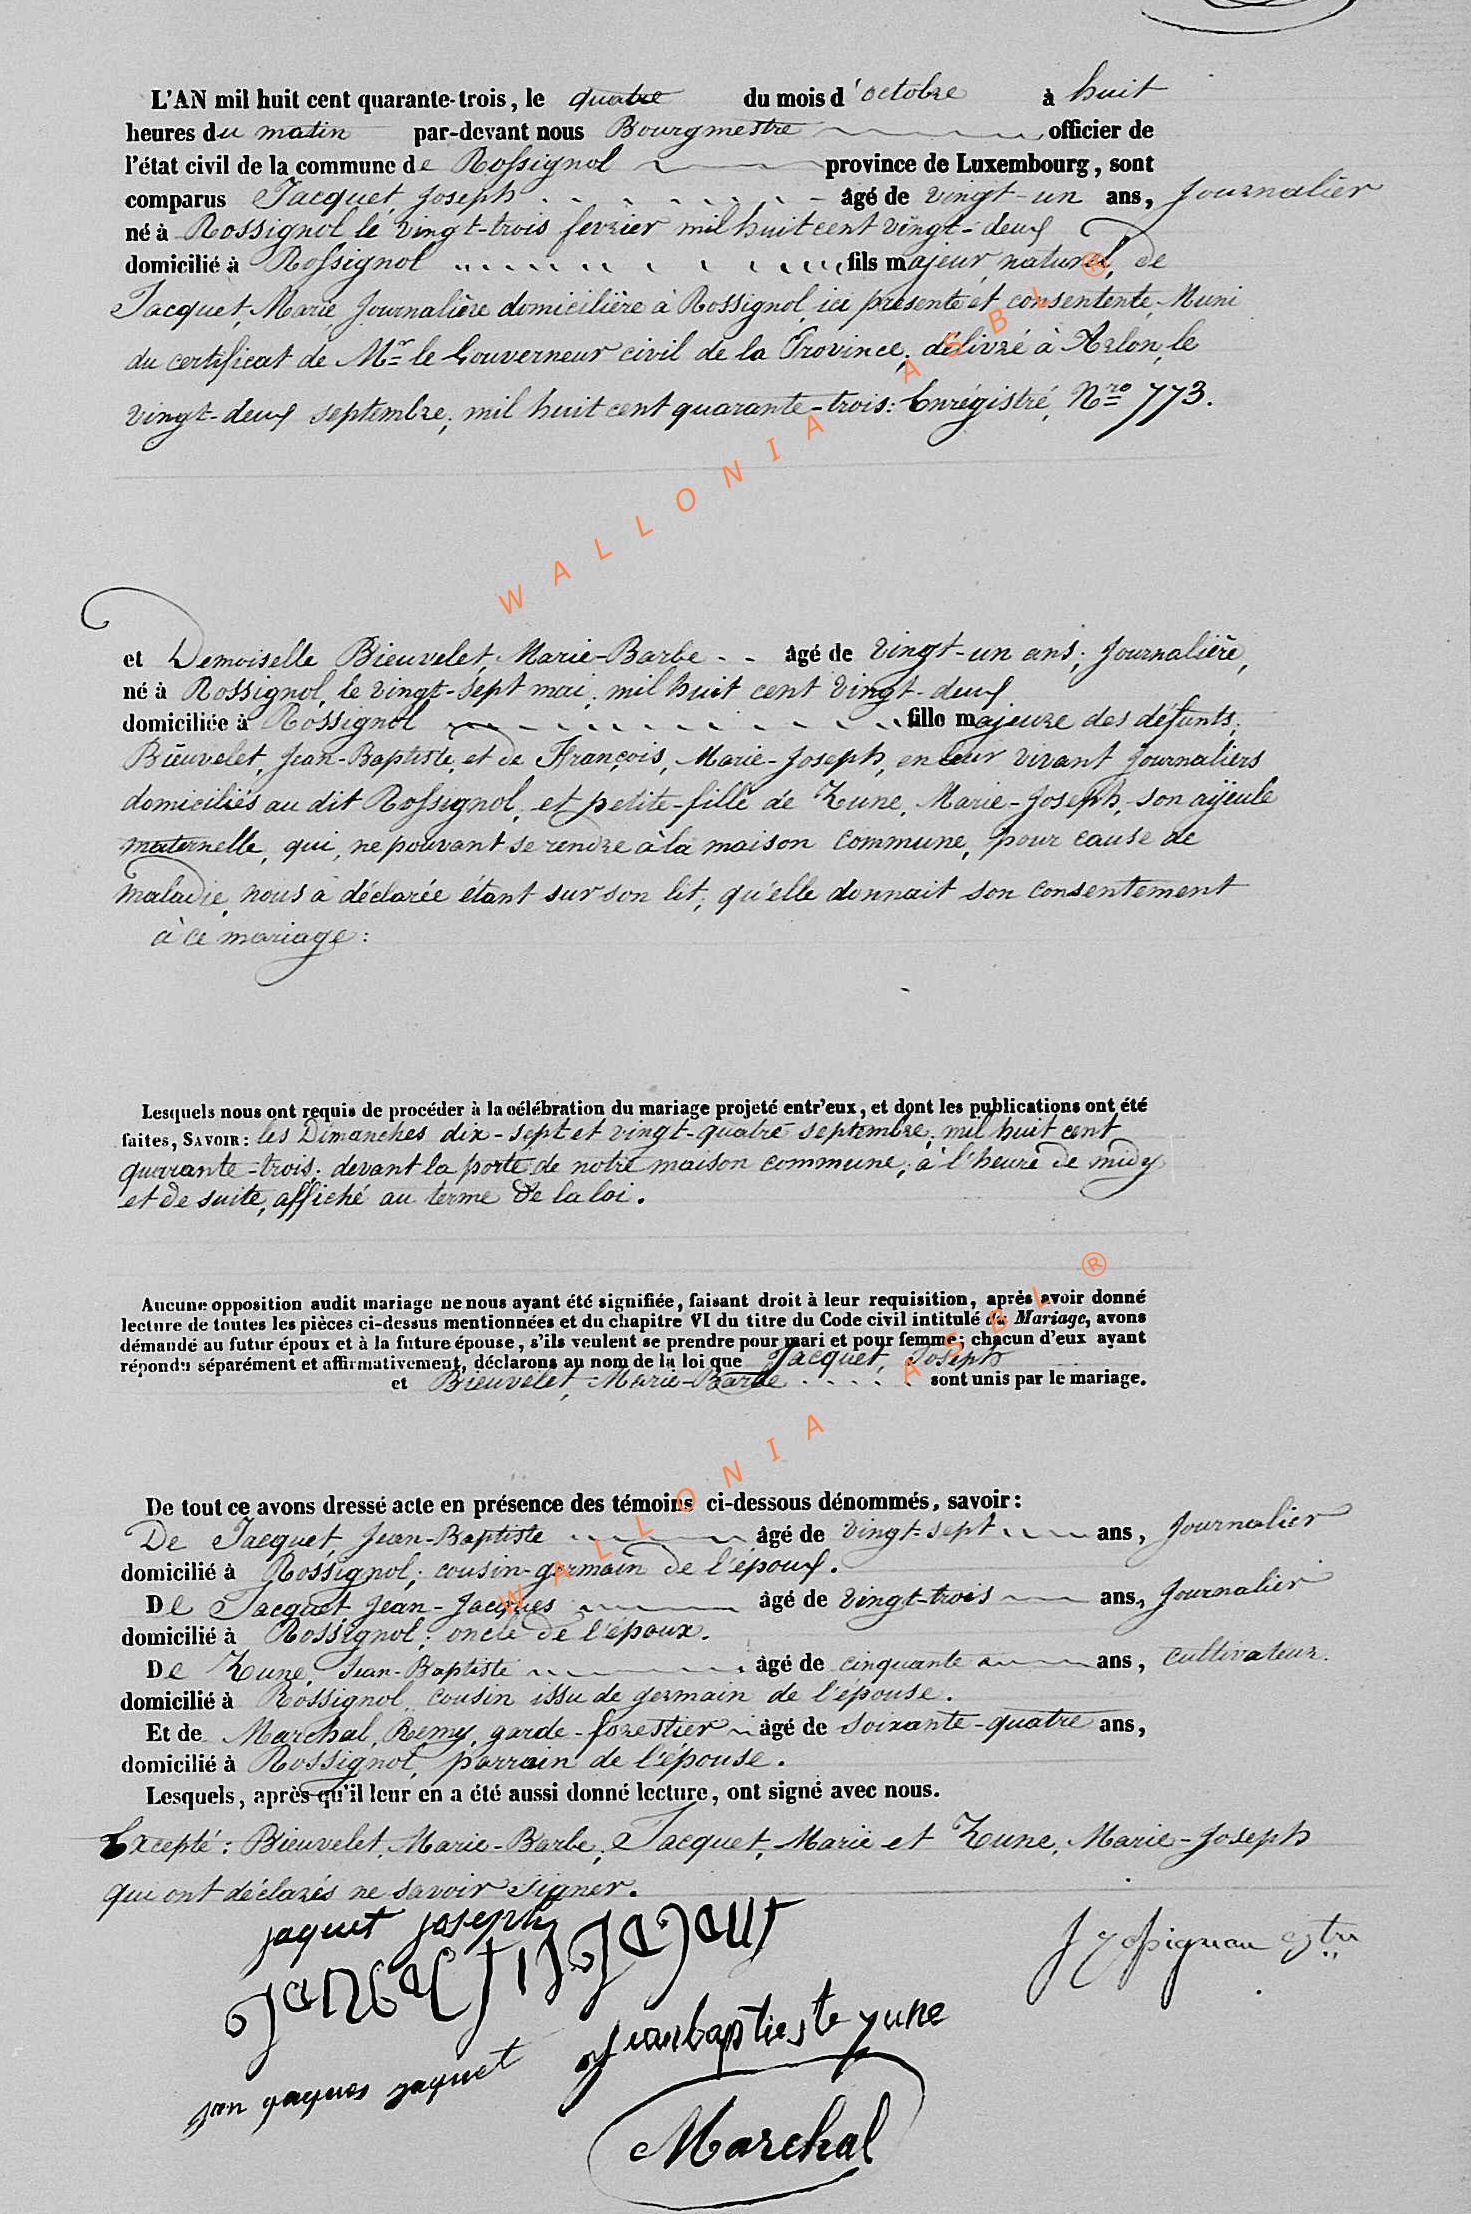 L'AN mil huit cent quarante-trois, le quatre du mois d'octobre à huit
heures du matin par-devant nous Bourgmestre officier de
l'état civil de la commune de Rossignol province de Luxembourg, sont
comparus Jacquet, Joseph âgé de vingt-un ans, Journalier
né à Rossignol le vingt-trois fevrier mil huit cent vingt-deux
domicilié à Rossignol fils majeur, naturel, de
Jacquet, Marie, Journalière domicilière à Rossignol, ici présente et consentente, Muni
du certificat de Mr le Gouverneur civil de la Province, délivré à Arlon, le
vingt-deux septembre, mil huit cent quarante-trois: Enrégistré, Nro 773.
et Demoiselle Bieuvelet, Marie-Barbe âgé de vingt-un ans, Journalière,
né à Rossignol, le vingt-sept mai, mil huit cent vingt-deux
domiciliée à Rossignol fille majeure des défunts,
Bieuvelet, Jean-Baptiste, et de François, Marie-Joseph, en leur vivant journaliers
domiciliés au dit Rossignol, et petite-fille de Zune, Marie-Joseph, son ayeule
maternelle, qui, ne pouvant se rendre à la maison commune, pour cause de
maladie, nous à déclarée étant sur son lit, qu'elle donnait son consentement
à ce mariage:
Lesquels nous ont requis de procéder à la célébration du mariage projeté entr'eux, et dont les publications ont été
faites, SAVOIR: les Dimanches dix-sept et vingt-quatre septembre, mil huit cent
quarante-trois, devant la porte de notre maison commune, à l'heure de midy
et de suite, affiché au terme de la loi.
Aucune opposition audit mariage ne nous ayant été signifiée, faisant droit à leur requisition, après avoir donné
lecture de toutes les pièces ci-dessus mentionnées et du chapitre VI du titre du Code civil intitulé du Mariage, avons
démandé au futur époux et à la future épouse, s'ils veulent se prendre pour mari et pour femme; chacun d'eux ayant
répondu séparément et affirmativement, déclarons au nom de la loi que Jacquet, Joseph
et Bieuvelet, Marie-Barbe sont unis par le mariage.
De tout ce avons dressé acte en présence des témoins ci-dessous dénommés, savoir:
De Jacquet, Jean-Baptiste âgé de vingt-sept ans, Journalier
domicilié à Rossignol, cousin-germain de l'époux.
De Jacquet, Jean-Jacques âgé de vingt-trois ans, Journalier
domicilié à Rossignol; oncle de l'époux.
De Zune, Jean-Baptiste âgé de cinquante ans, cultivateur.
domicilié à Rossignol, cousin issu de germain de l'épouse.
Et de Marchal, Remy, garde-forestier âgé de soixante-quatre ans,
domicilié à Rossignol, parrain de l'épouse.
Lesquels, après qu'il leur en a été aussi donné lecture, ont signé avec nous.
Excepté: Bieuvelet, Marie-Barbe, Jacquet, Marie et Zune, Marie-Joseph
qui ont déclarés ne savoir signer.
jaquet joseph
jean baptiste zune
jan jaques jaquet
Marchal
WALLONIA ASBL ®
WALLONIA ASBL ®